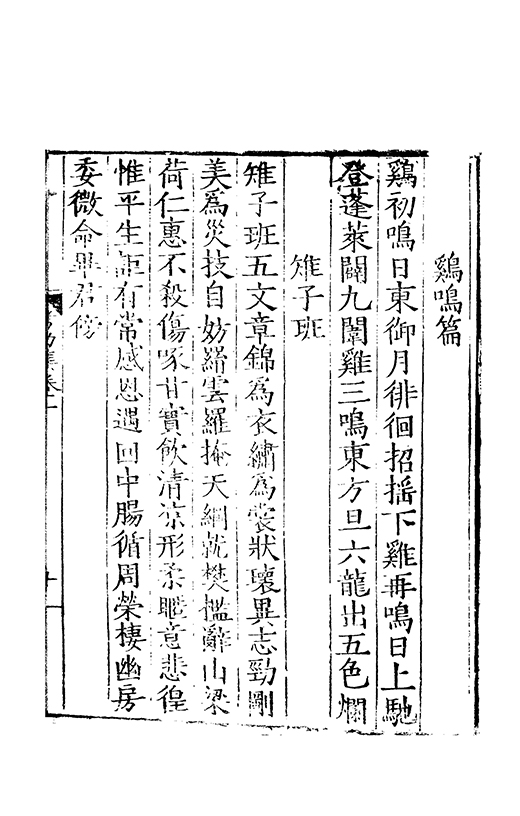 鷄鳴篇
鷄初鳴日東御月徘徊招搖下雞再鳴日上馳
登蓬萊闢九闈雞三鳴東方旦六龍出五色爛
雉子班
雉子班五文章錦爲衣繡爲裳狀瓌異志勁剛
美爲災技自妨絡雲羅掩天綱就樊檻辭山梁
荷仁惠不殺傷啄甘實飲清凉形柔暱意悲徨
惟平生詎有常感恩遇回中腸循周榮棲幽房
委微命畢君傍
集卷一
十一